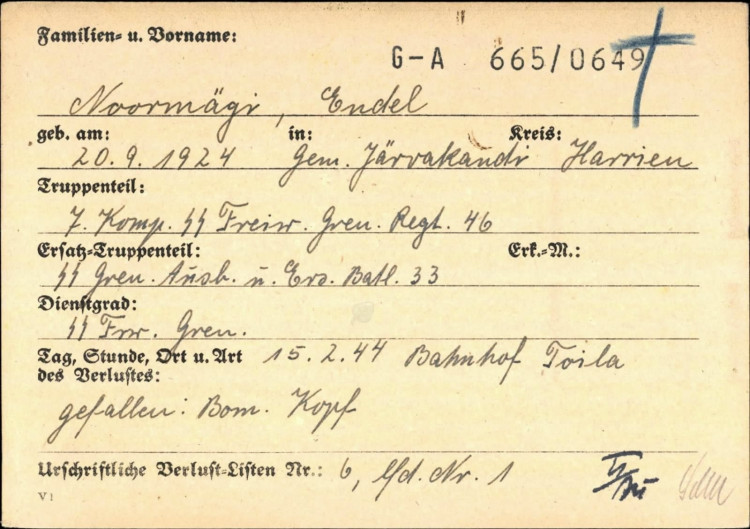 Familien- u. Vorname:
G-A 665/0649
Noormägi, Endel
geb. am: in: Kreis:
20.9.1924 Gem. Järvakandi Harrien
Truppenteil:
7. Komp. SS Freiw. Gren. Regt. 46
Ersatz-Truppenteil: Erk.-M.:
SS Gren. Ausb. u. Ers. Batl. 33
Dienstgrad:
SS Frw. Gren.
Tag, Stunde, Ort u. Art 15.2.44 Bahnhof Toila
des Verlustes:
gefallen: Bom. Kopf
Urschriftliche Verlust-Listen Nr.: 6, lfd. Nr. 1
V 1